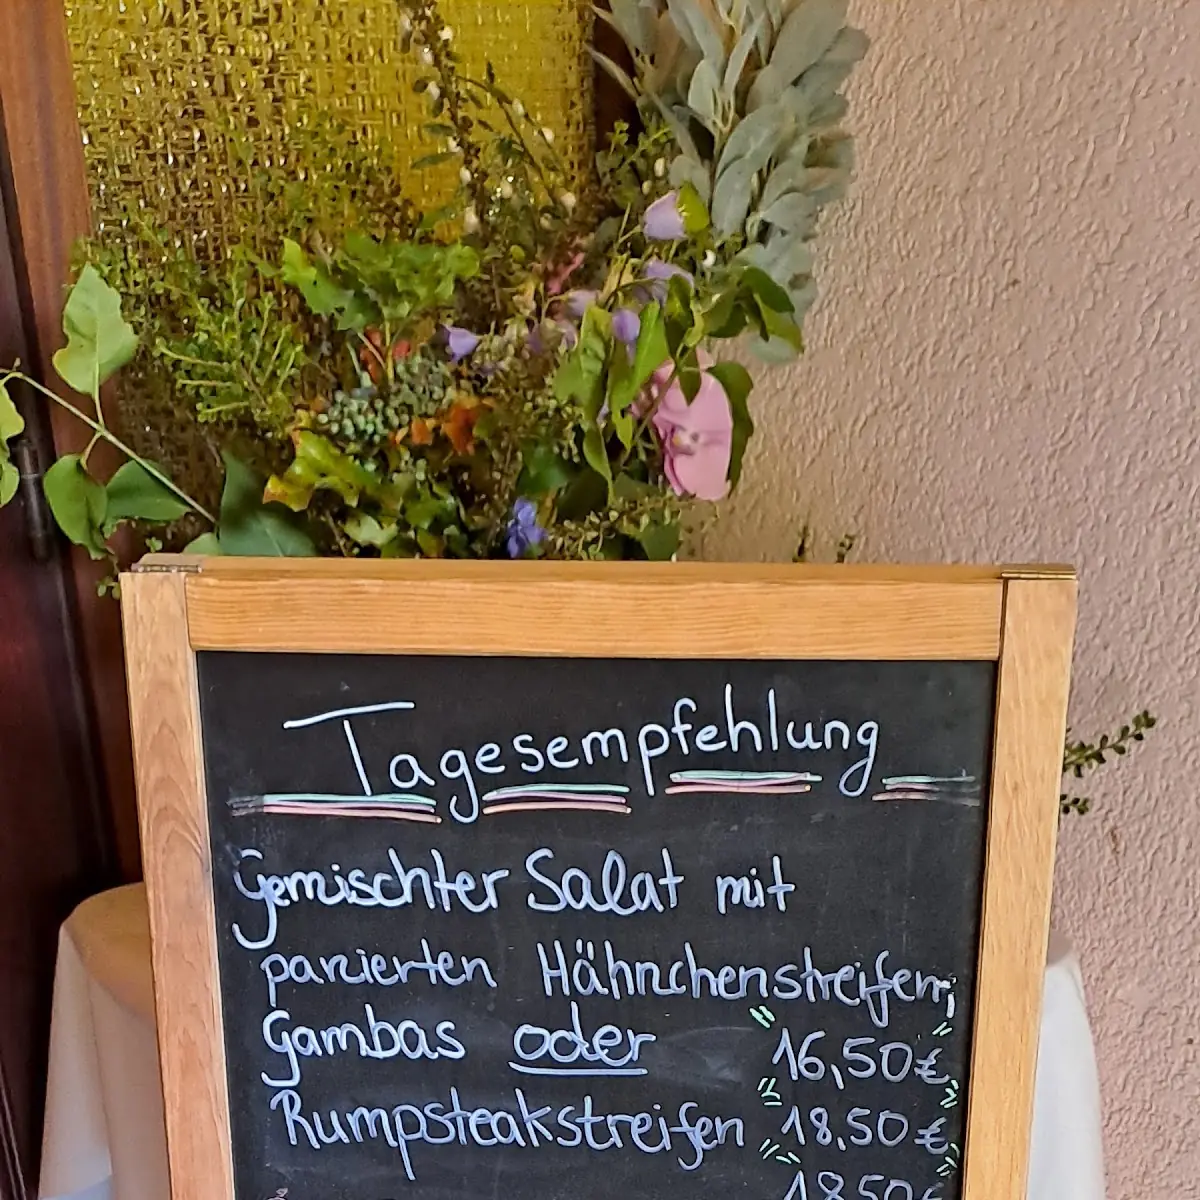 Tagesempfehlung
Gemischter Salat mit
panierten Hähnchenstreifen,
Gambas oder 16,50€
Rumpsteakstreifen 18,50€
18,50€